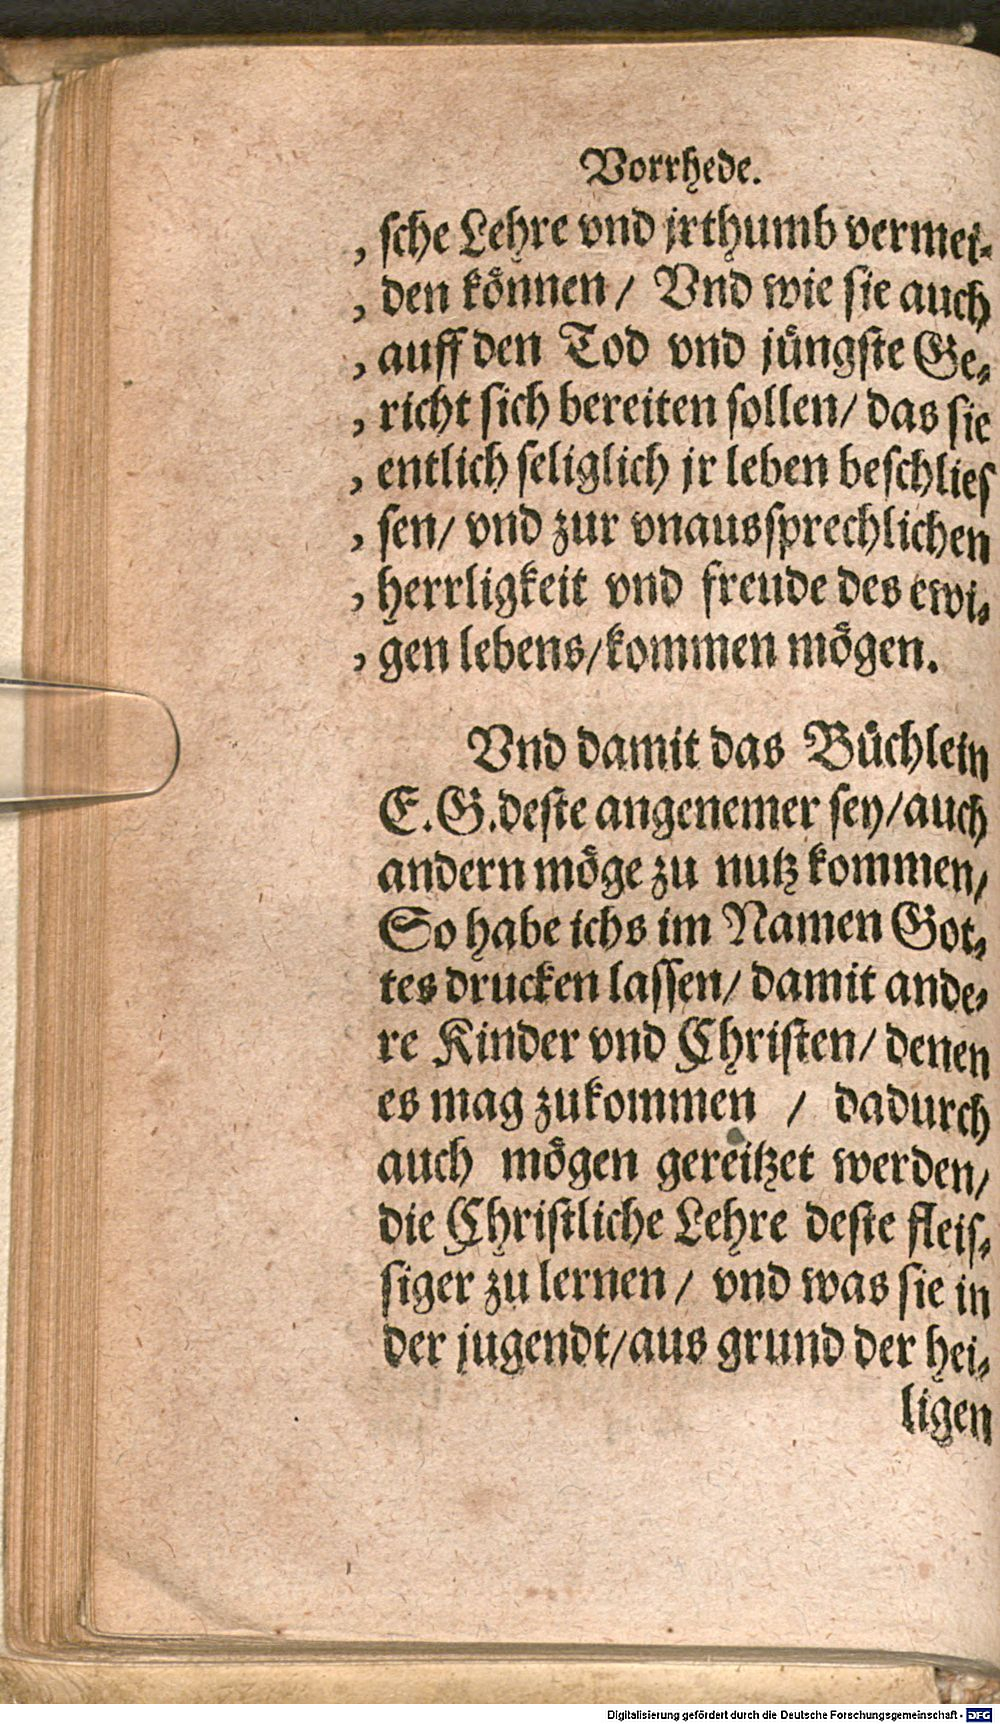 Vorrhede.
, sche Lehre vnd jrthumb vermei-
, den können / Vnd wie sie auch
, auff den Tod vnd jüngste Ge-
, richt sich bereiten sollen / das sie
, entlich seliglich jr leben beschlies
, sen / vnd zur vnaussprechlichen
, herrligkeit vnd freude des ewi-
, gen lebens / kommen mögen.
Vnd damit das Büchlein
E. G. deste angenemer sey / auch
andern möge zu nutz kommen /
So habe ichs im Namen Got-
tes drucken lassen / damit ande-
re Kinder vnd Christen / denen
es mag zukommen / dadurch
auch mögen gereitzet werden /
die Christliche Lehre deste fleis-
siger zu lernen / vnd was sie in
der jugendt / aus grund der hei-
ligen
Digitalisierung gefördert durch die Deutsche Forschungsgemeinschaft - DFG